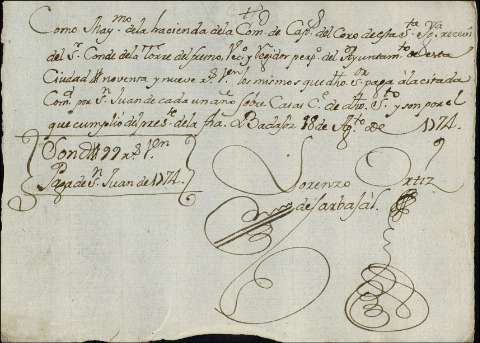 Como May.mo de la hacienda de la Com. de Cap.s del Coro de esta S.ta Yg.a recivi
del S.r Conde de la Torre del fresno Vec.o y Regidor perp.o del Ayuntam.to de esta
Ciudad noventa y nueve r.s v.on los mismos que dho S.or paga a la citada
Com.d por S.n Juan de cada un año sobre Casas C.e de dho S.to y son por el
que cumplió del pres.te de la fha. Badajoz 18 de Ag.to de 1774.
Son 99 r.s v.on
Paga de S.n Juan de 1774.
Lorenzo Ortiz
de Sarbasàl